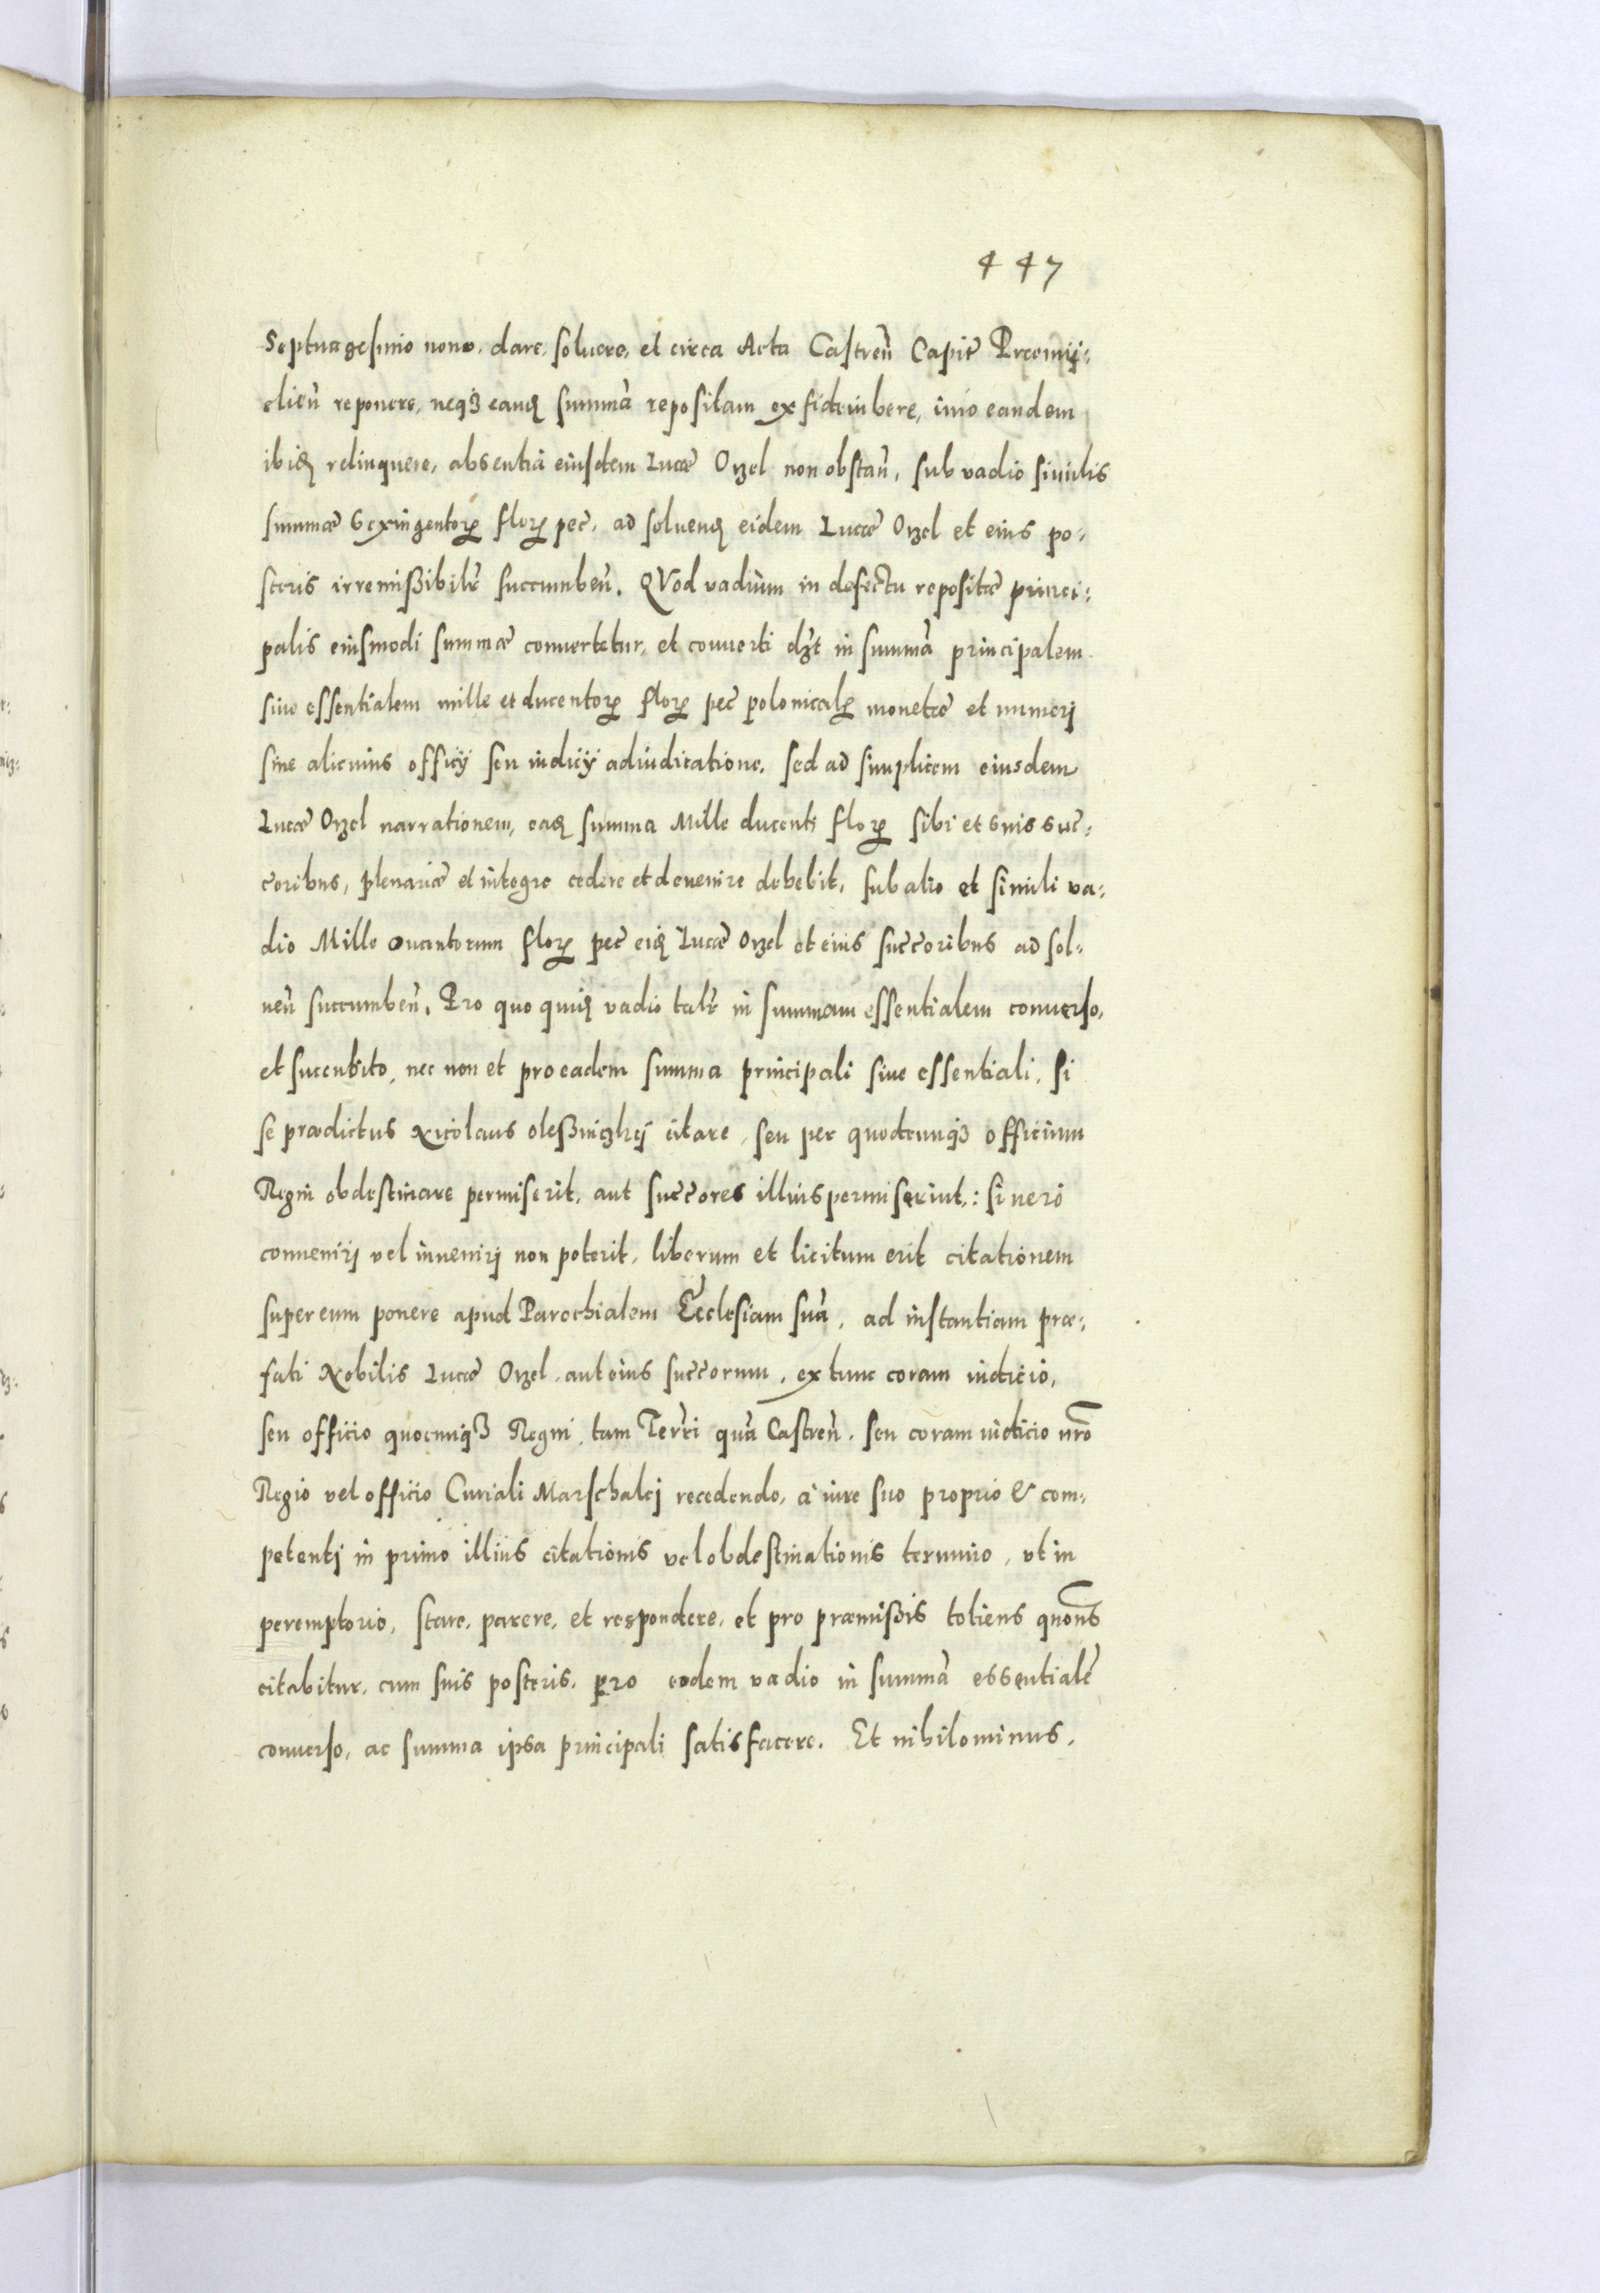 447
Septuagesimo nono, dare, soluere, et circa Acta Castreñ Capit̃ Præmij-
slieñ reponere, neqꝫ eanđ summã repositam ex fideiubere, imo eandem
ibiđ relinquere, absentia eiusdem Lucæ Orzel non obstañ, sub vadio similis
summæ Sexingentorꝝ florꝝ pec̃, ad soluenđ eidem Lucæ Orzel et eius po-
steris irremißibilr̃ succumbeñ. QVod vadium in defectu repositæ princi-
palis eiusmodi summæ conuertetur, et conuerti dꝫt in summã principalem
siue essentialem mille et ducentorꝝ florꝝ pec̃ polonicalꝝ monetæ et numerj
sine alicuius officij seu iudicij adiudicatione, sed ad simplicem eiusdem
Lucæ Orzel narrationem, eađ summa Mille ducenti florꝝ sibi et suis suc̃-
c̃oribus, plenarie et integre cedere et deuenire debebit, sub alio et simili va-
dio Mille ducentorum florꝝ pec̃ eiđ Lucæ Orzel et eius suc̃c̃oribus ad sol-
ueñ succumbeñ. Pro quo quiđ vadio talr̃ in summam essentialem conuerso,
et succubito, nec non et pro eadem summa principali siue essentiali, si
se prædictus Nicolaus oleßniczkij citare, seu per quodcunqꝫ officium
Regni obdestinare permiserit, aut suc̃c̃ores illius permiserint,: si vero
conuenirj vel inuenirj non poterit, liberum et licitum erit citationem
super eum ponere apud Parochialem Ecclesiam suã, ad instantiam præ-
fati Nobilis Lucæ Orzel, aut eius suc̃c̃orum, ex tunc coram iudicio,
seu officio quocunqꝫ Regni, tam Terr̃i quã Castreñ, seu coram iudicio nr̃o
Regio vel officio Curiali Marschalcj recedendo, à iure suo proprio & com-
petentj in primo illius citationis vel obdestinationis termino, vt in
peremptorio, stare, parere, et respondere, et pro præmißis totiens quoñs
citabitur, cum suis posteris, pro eodem vadio in summã essentialẽ
conuerso, ac summa ipsa principali satisfacere. Et nihilominus,